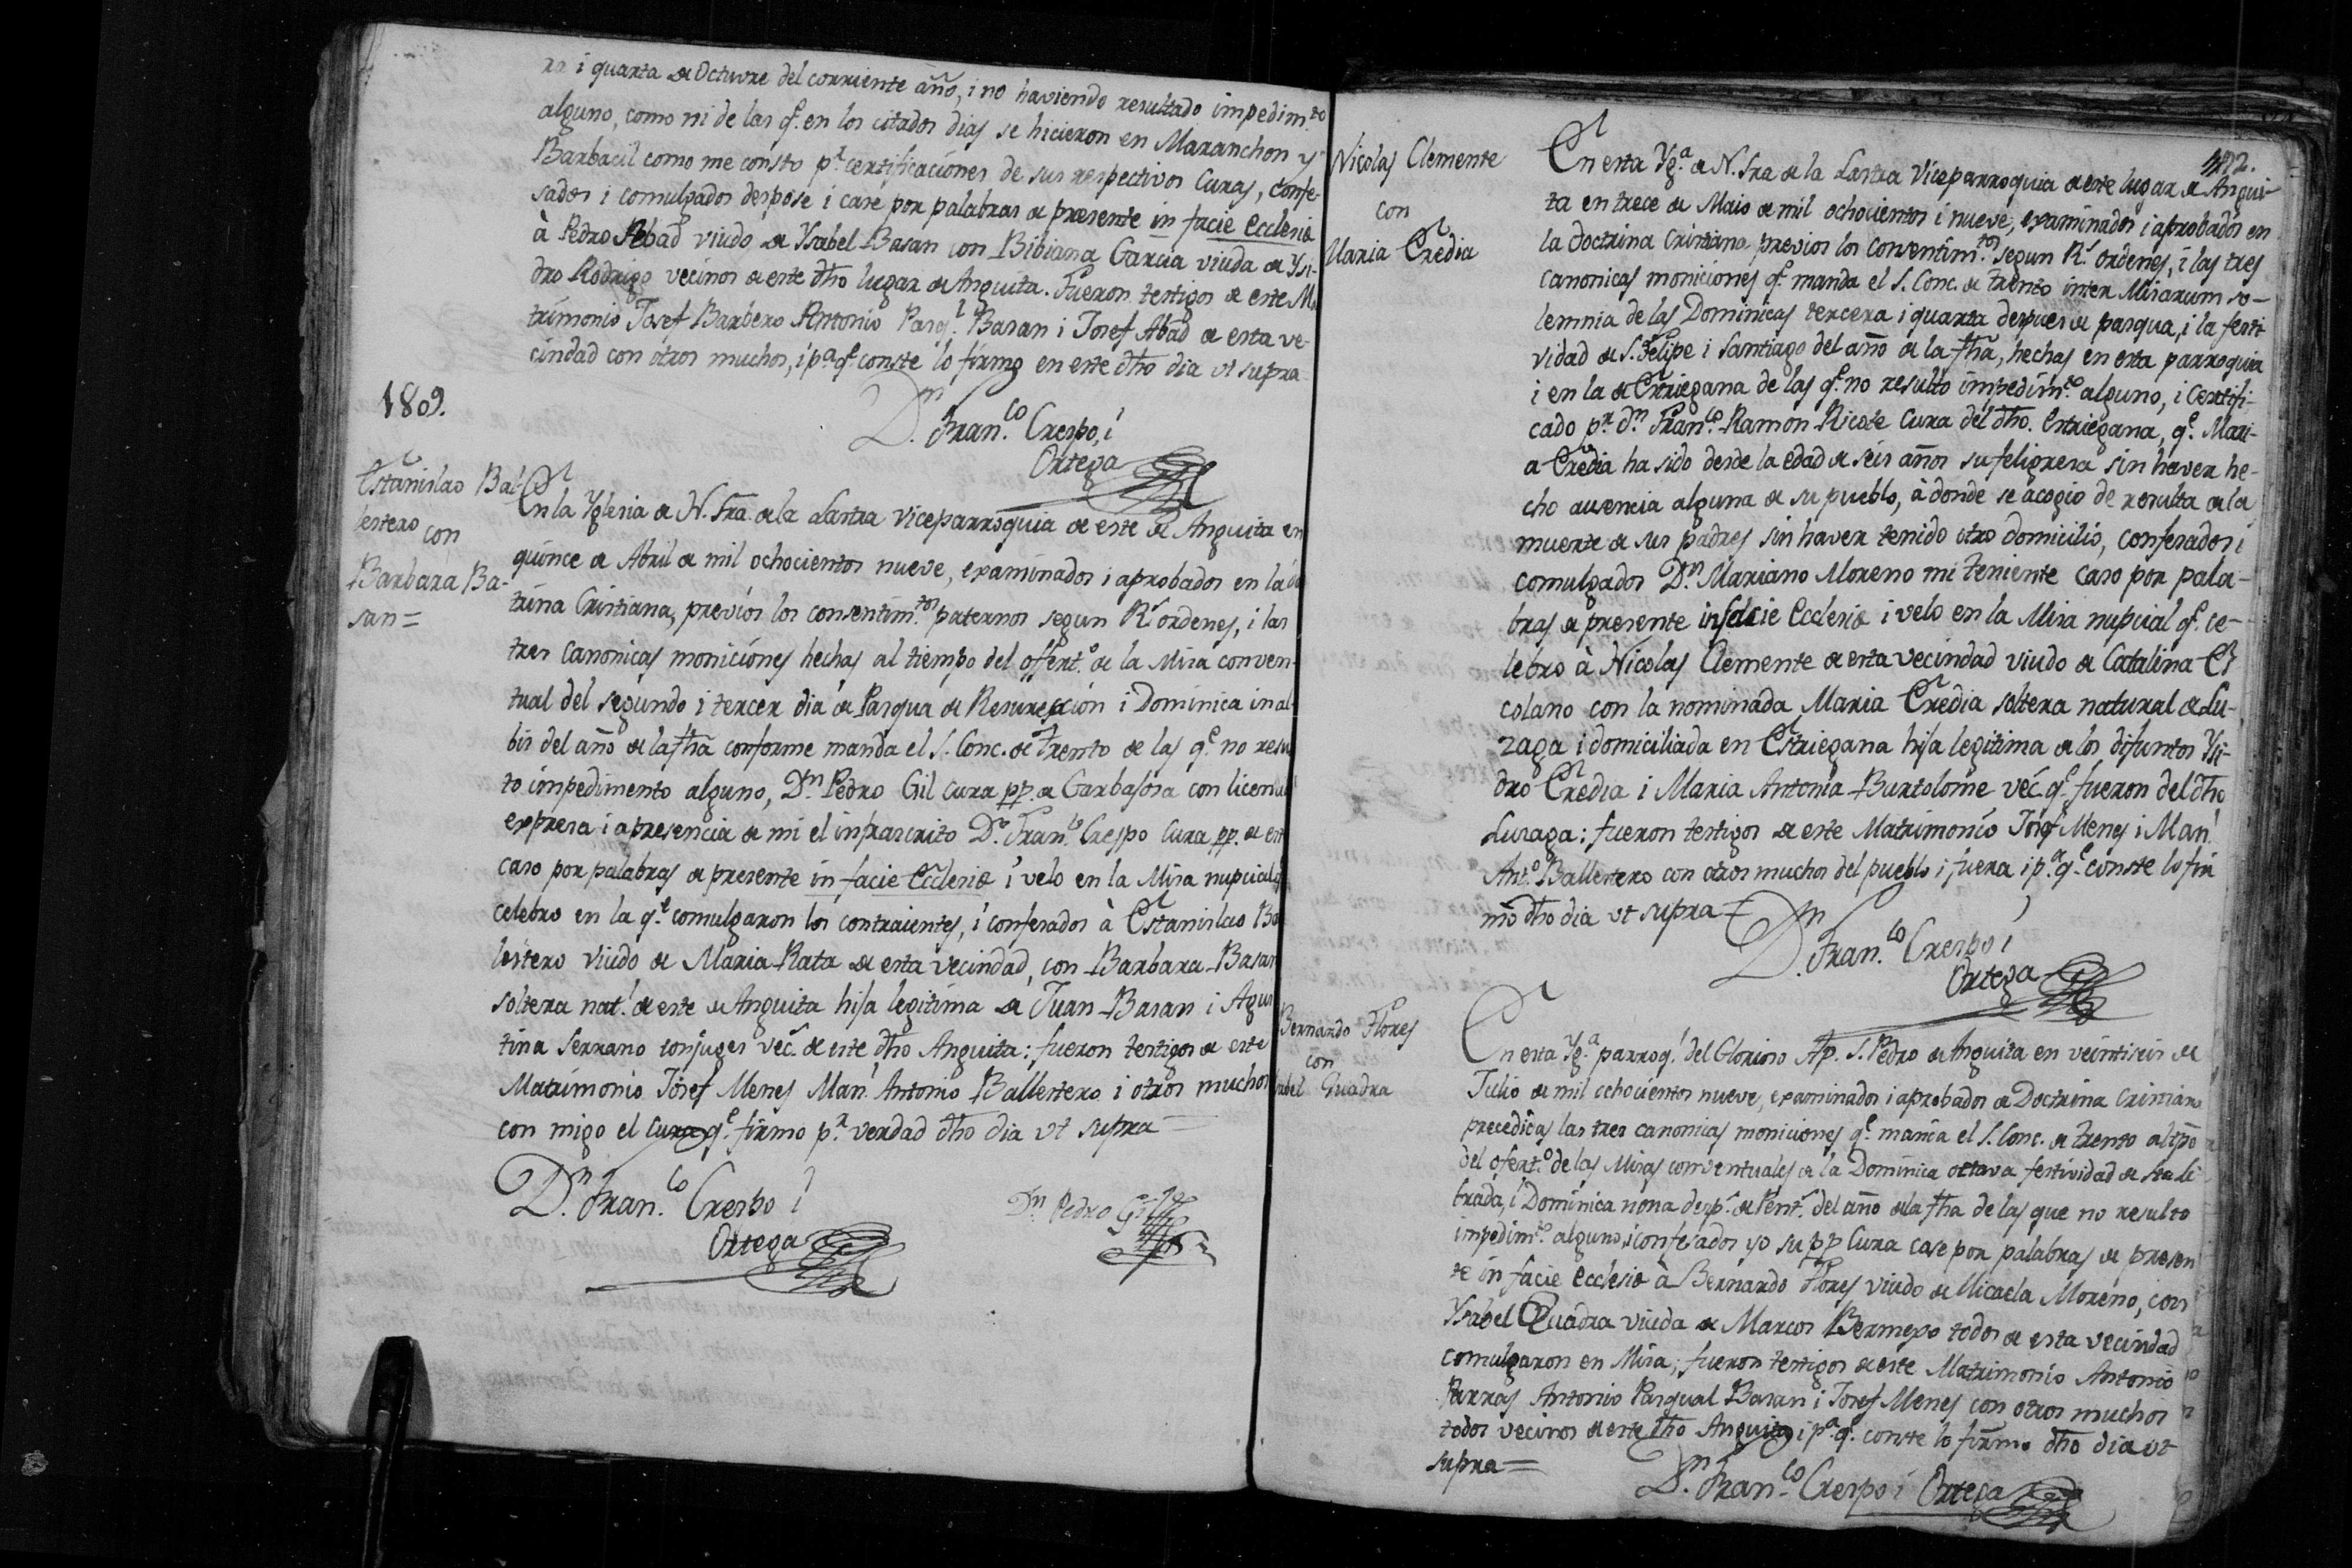 ra i quarta de Octuvre del corriente año, i no haviendo resultado impedim.to
alguno, como ni de las q.e en los citados dias se hicieron en Maranchon y
Barbacil como me consto p.r certificaciónes de sus respectivos Curas, confe-
sados i comulgados despose i case por palabras de presente in facie Ecclesiæ
à Pedro Abad viudo de Ysabel Basan con Bibiana Garcia viuda de Ysi-
dro Rodrigo vecinos de este dho lugar de Anguita. Fueron testigos de este Ma
trimonio Josef Barbero Antonio Pasq.l Basan i Josef Abad de esta ve-
cindad con otros muchos, i p.a q.e conste lo firmo en este dho dia ut supra
D.n Fran.co Crespo, i
Ortega
1809.
Estanislao Ba-
lestero
con
Barbara Ba-
san=
En la Yglesia de N. Sra. de la Lastra Viceparroquia de este de Anguita en
quince de Abril de mil ochocientos nueve, examinados i aprobados en la do
trina Cristiana, previos los consentim.tos paternos segun R.s ordenes, i las
tres Canonicas moniciónes hechas al tiempo del offert.o de la Misa conven-
tual del segundo i tercer dia de Pasqua de Resureccion i Dominica in al-
bis del año de la fha conforme manda el S. Conc. de Trento de las q.e no resu
to impedimento alguno, D.n Pedro Gil Cura pp. de Garbajosa con licencia
expresa i apresencia de mi el infrascrito D.n Fran.co Crespo Cura pp. de este
caso por palabras de presente in facie Ecclesiæ i velo en la Misa nupcial q
celebro en la q.e comulgaron los contraientes, i confesados à Estanislao Ba
lestero viudo de Maria Rata de esta vecindad, con Barbara Basan
soltera nat.l de este de Anguita hija legitima de Juan Basan i Agus
tina Serrano conjuges vec.s de este dho Anguita: fueron testigos de este
Matrimonio Josef Menes Man.l Antonio Ballestero i otros muchos
con migo el Cura q.e firmo p.r verdad dho dia ut supra
D.n Fran.co Crespo i
Ortega
D.n Pedro Gil
472.
Nicolas Clemente
con
Maria Eredia
En esta Yg.a de N. Sra de la Lastra Viceparroquia de este lugar de Angui-
ta en trece de Maio de mil ochocientos i nueve, examinados i aprobados en
la doctrina Cristiana previos los Consentim.tos segun R.s ordenes, i las tres
canonicas moniciones q.e manda el S. Conc. de Trento inter Misarum so-
lemnia de las Dominicas tercera i quarta despues de pasqua, i la festi
vidad de S. Felipe i Santiago del año de la fha, hechas en esta parroquia
i en la de Estriegana de las q.e no resulto impedim.to alguno, i Certifi-
cado p.r D.n Fran.co Ramon Ricote Cura del dho. Estriegana, q.e Mari-
a Eredia ha sido desde la edad de seis años su feligresa sin haver he-
cho ausencia alguna de su pueblo, à donde se acogio de resulta de la
muerte de sus padres sin haver tenido otro domicilio, confesados i
comulgados D.n Mariano Moreno mi teniente caso por pala-
bras de presente in facie Ecclesiæ i velo en la Misa nupcial q.e ce-
lebro à Nicolas Clemente de esta vecindad viudo de Catalina Es
colano con la nominada Maria Eredia soltera natural de Lu-
zaga i domiciliada en Estriegana hija legitima de los difuntos Ysi-
dro Eredia i Maria Antonia Bartolome vec.s q.e fueron del dho
Luzaga: fueron testigos de este Matrimonio Josef Menes i Man.l
Ant.o Ballestero con otros muchos del pueblo i fuera i p.a q.e conste lo fir
mo dho dia ut supra=
D.n Fran.co Crespo i
Ortega
Bernardo Flores
con
abel Quadra
En esta Yg.a parroq.l del Glorioso Ap. S. Pedro de Anguita en veintiseis de
Julio de mil ochocientos nueve, examinados i aprobados de Doctrina Cristiana
precedidas las tres canonicas moniciones q.e manda el S. Conc. de Trento al tpo
del ofert.o de las Misas conventuales de la Dominica octava festividad de Sta Li
brada, i Dominica nona desp.s de Pent.s del año de la fha de las que no resulto
impedim.to alguno, i confesados yo su pp Cura case por palabras de presen
te in facie Ecclesiæ à Bernardo Flores viudo de Micaela Moreno, con
Ysabel Quadra viuda de Marcos Bermejo todos de esta vecindad
comulgaron en Misa; fueron testigos de este Matrimonio Antonio
Parras Antonio Pasqual Basan i Josef Menes con otros muchos
todos vecinos de este dho Anguita i p.a q.e conste lo firmo dho dia ut
supra=
D.n Fran.co Crespo i Ortega